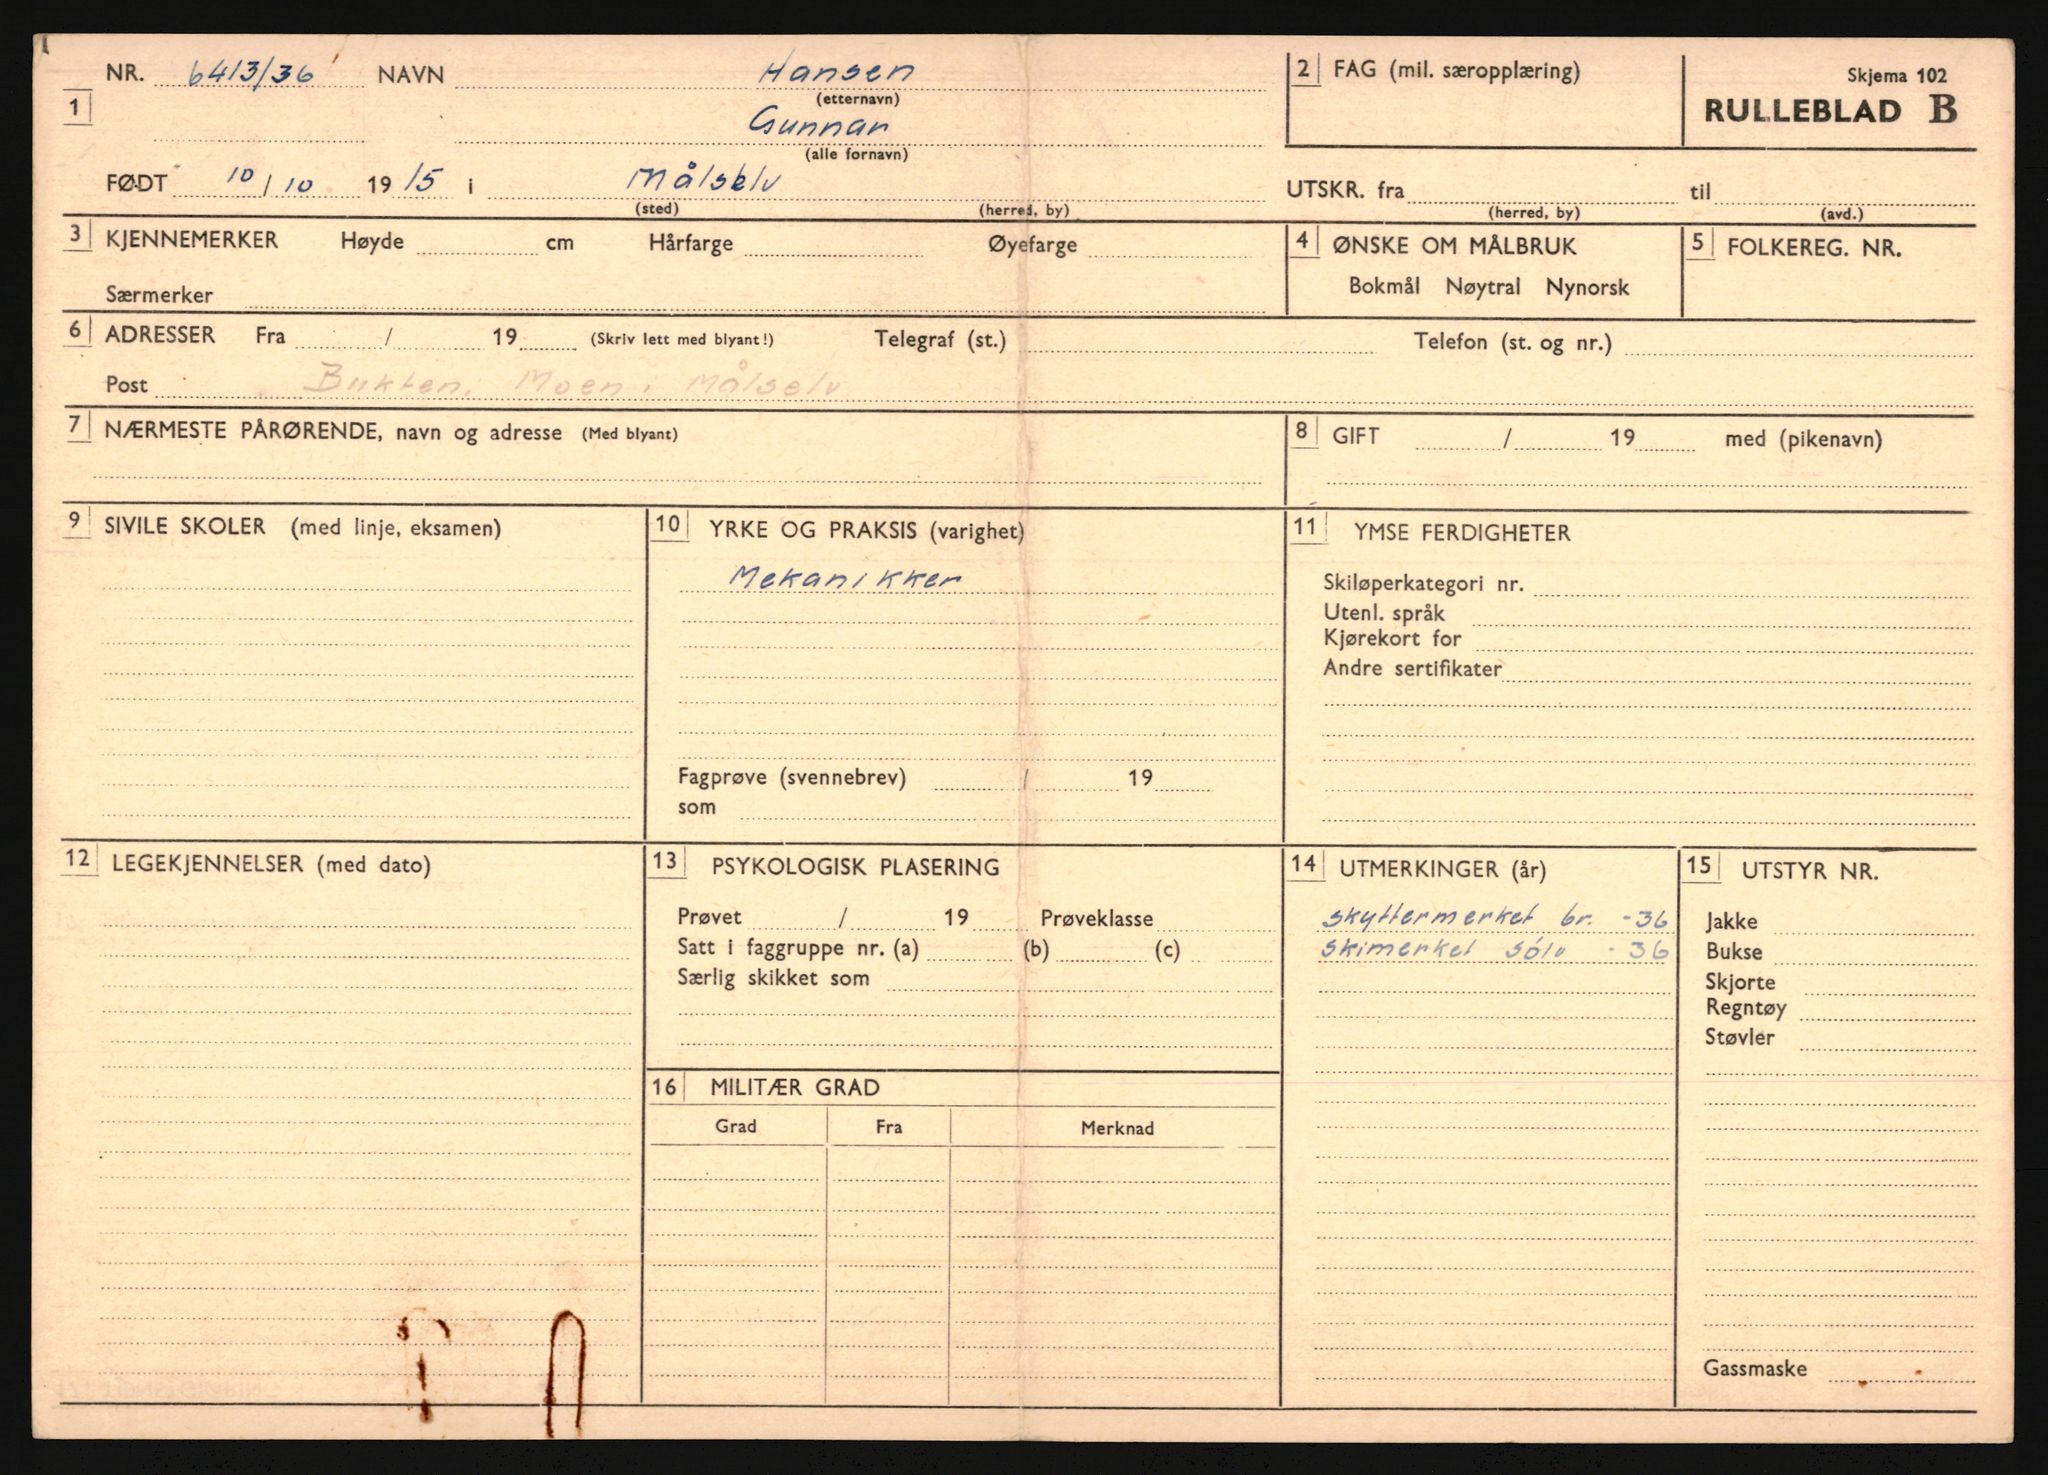 NR. 6413/36 NAVN Hansen
(etternavn)
1
Gunnar
(alle fornavn)
FØDT 10/10 1915 i Målselv
(sted) (herred, by)
2 FAG (mil. særopplæring)
Skjema 102
RULLEBLAD B
UTSKR. fra til
(herred, by) (avd.)
3 KJENNEMERKER Høyde cm Hårfarge Øyefarge
Særmerker
4 ØNSKE OM MÅLBRUK
Bokmål Nøytral Nynorsk
5 FOLKEREG. NR.
6 ADRESSER Fra / 19 (Skriv lett med blyant!) Telegraf (st.) Telefon (st. og nr.)
Post Bukten, Moen i Målselv
7 NÆRMESTE PÅRØRENDE, navn og adresse (Med blyant)
8 GIFT / 19 med (pikenavn)
9 SIVILE SKOLER (med linje, eksamen)
10 YRKE OG PRAKSIS (varighet)
Mekanikker
Fagprøve (svennebrev) / 19
som
11 YMSE FERDIGHETER
Skiløperkategori nr.
Utenl. språk
Kjørekort for
Andre sertifikater
12 LEGEKJENNELSER (med dato)
13 PSYKOLOGISK PLASERING
Prøvet / 19 Prøveklasse
Satt i faggruppe nr. (a) (b) (c)
Særlig skikket som
14 UTMERKINGER (år)
Skyttermerket br. -36
Skimerket sölv -36
15 UTSTYR NR.
Jakke
Bukse
Skjorte
Regntøy
Støvler
Gassmaske
16 MILITÆR GRAD
Grad Fra Merknad